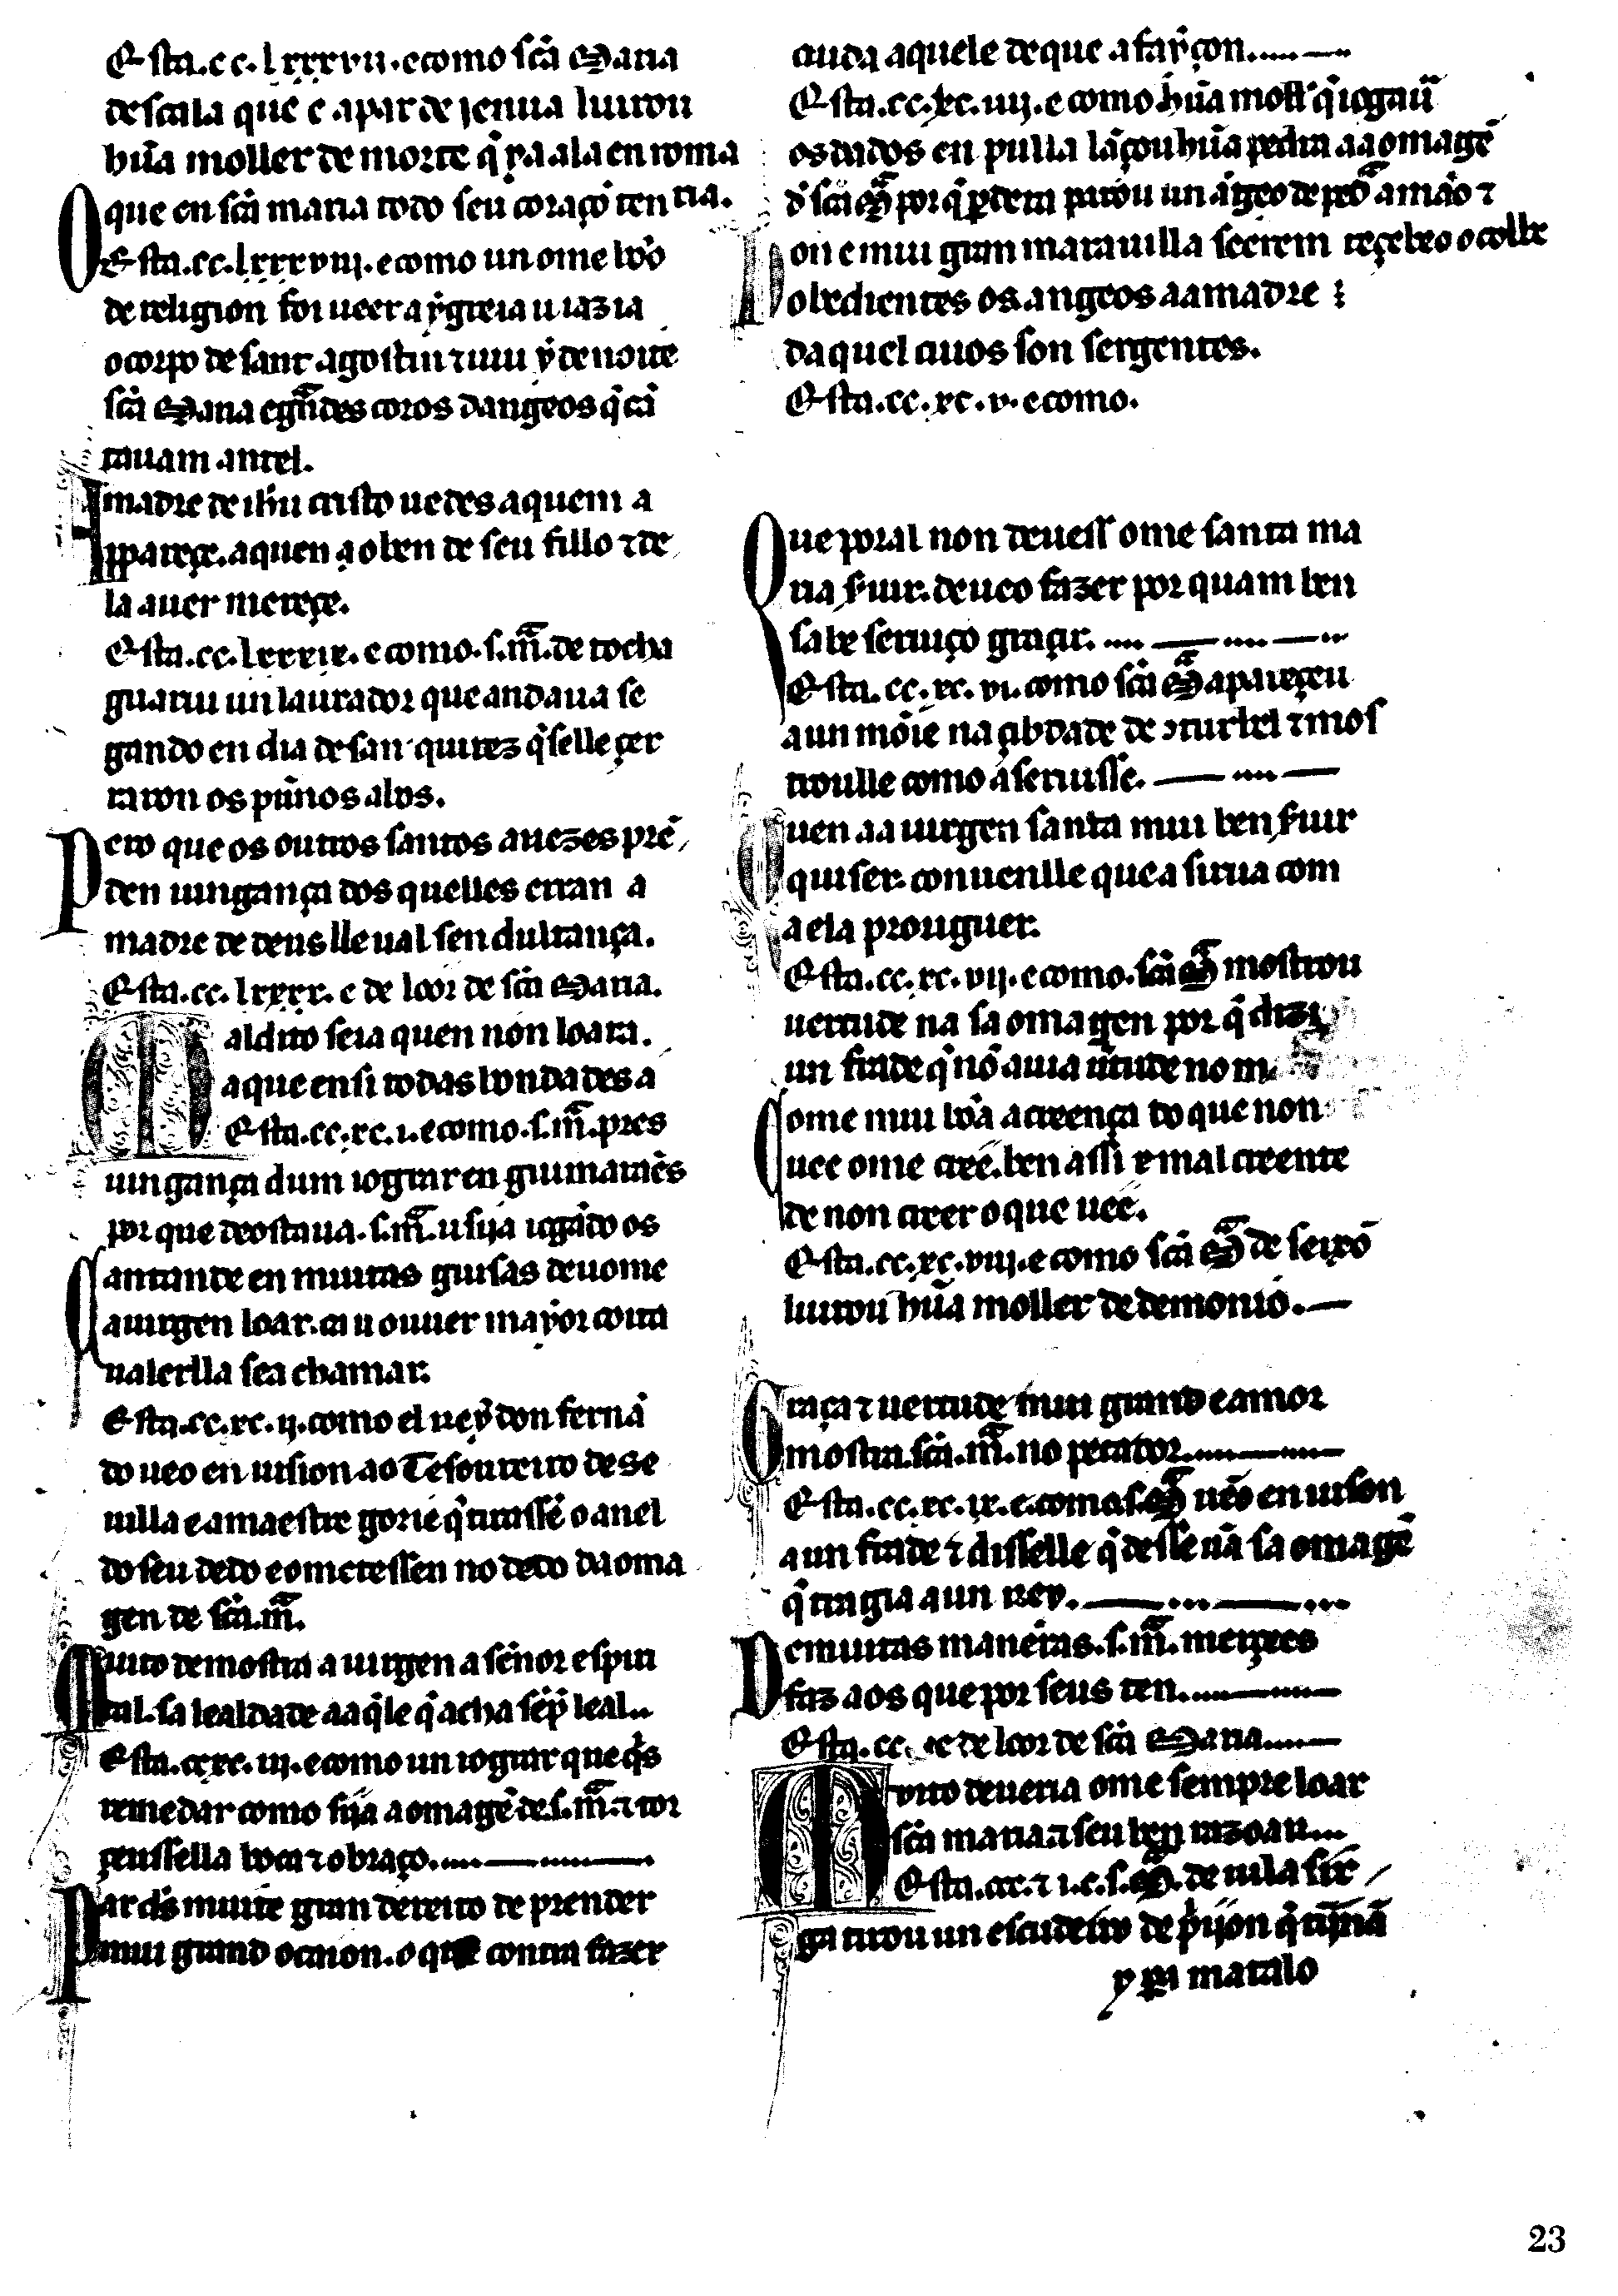 Esta .cc.lxxxvii. e como sc̃a Maria
de scala que é a par de jenua liurou
hũa moller de morte q̃ ya ala en roma
que en sc̃a maria todo seu coraçõ ten ria.
Esta .cc.lxxxviii. e como un ome bõo
de religion foi ueer a ygreia u iazia
o corpo de sant agostin ⁊ uiu y de noite
sc̃a Maria e grãdes coros dangeos q̃ cã
tauam antel.
A madre de ihũ cristo uedes a quem a
ppareçe. a quen a o ben de seu fillo ⁊ de
la auer mereçe.
Esta .cc.lxxxix. e como .s.m̃a. de tocha
guariu un laurador que andaua se
gando en dia de san quirez q̃ selle çer
raron os pũnos abos.
Pero que os outros santos auezes prẽ
den uingança dos quelles erran a
madre de deus lle ual sen dultança.
Esta .cc.lxxxx. e de loor de sc̃a Maria.
Maldito seia quen non loara.
a que en si todas bondades a
Esta .cc.xc.i. e como .s.m̃a. pres
uingança dum iograr en guimarães
por que deostaua .s.m̃a. u siia iogãdo os
Cantande en muitas guisas deuome
a uirgen loar. ca u ouuer mayor coita
ualerlla sea chamar.
Esta .cc.xc.ii. como el rey don fernã
do ueo en uision ao Tesoureiro de se
uilla e a maestre gorie q̃ tirassẽ o anel
do seu dedo e o metessen no dedo da oma
gen de sc̃a.m̃a.
Muito demostra a uirgen a señor espiri
tal. sa lealdade a aq̃le q̃ acha sẽp̃ leal..
Esta .ccxc.iii. e como un iograr que q̃s
remedar como siia a omagẽ de .s.m̃a. ⁊ tor
çeusselle a boca ⁊ o braço.
Par ds̃ muit e gran dereito de prender
mui grand ocaion. o que contra fazer
cuda aquele de que a fayçon.
Esta .cc.xc.iiij. e como hũa moll' q̃ iogaũ
os dados en pulla lãçou hũa pedra aa omagẽ
d' sc̃a M̃a por q̃ p̃dera parou un ãgeo de pedr̃a a mão ⁊
Non e mui gran marauilla seerem reçebeo o colbe
obedientes os angeos aa madre
daquel cuios son sergentes.
Esta .cc.xc.v. e como.
Que por al non deuess' ome santa ma
ria s̃uir. deueo fazer por quam ben
sabe seruiço graçir.
Esta .cc.xc.vi. como sc̃a M̃a apareçeu
a un mõie na çibdade de conturbel ⁊ mos
troulle como a seruisse.
Quen aa uirgen santa mui ben s̃uir
quiser. conuenlle que a sirua com
a ela prouguer.
Esta .cc.xc.vij. e como .sc̃a M̃a mostrou
uertude na sa omagen por q̃ dizi
un frade q̃ nõ auia ũtude no m
Come mui bõa a creença do que non
uee ome creẽ. ben assi e mal creente
de non creer o que ueẽ.
Esta .cc.xc.viij. e como sc̃a M̃a de seixõ
liurou hũa moller de demonio.
Graça ⁊ uertude mui grand e amor
mostra sc̃a.m̃a. no pecador.
Esta .cc.xc.ix. e. como .s.M̃a uẽo en uison
a un frade ⁊ disselle q̃ desse ũa sa omagẽ
q̃ tragia a un Rey.
De muitas maneiras .s.m̃a. merçees
faz aos que por seus ten.
Esta .cc. xc de loor de sc̃a Maria
Muito deueria ome sempre loar
sc̃a maria ⁊ seu ben razõar
Esta .ccc. ⁊ i. c. s.M̃a. de uila sir
ga tirou un escudeiro de p̃ijon q̃ tiĩnã
y pera matalo
23